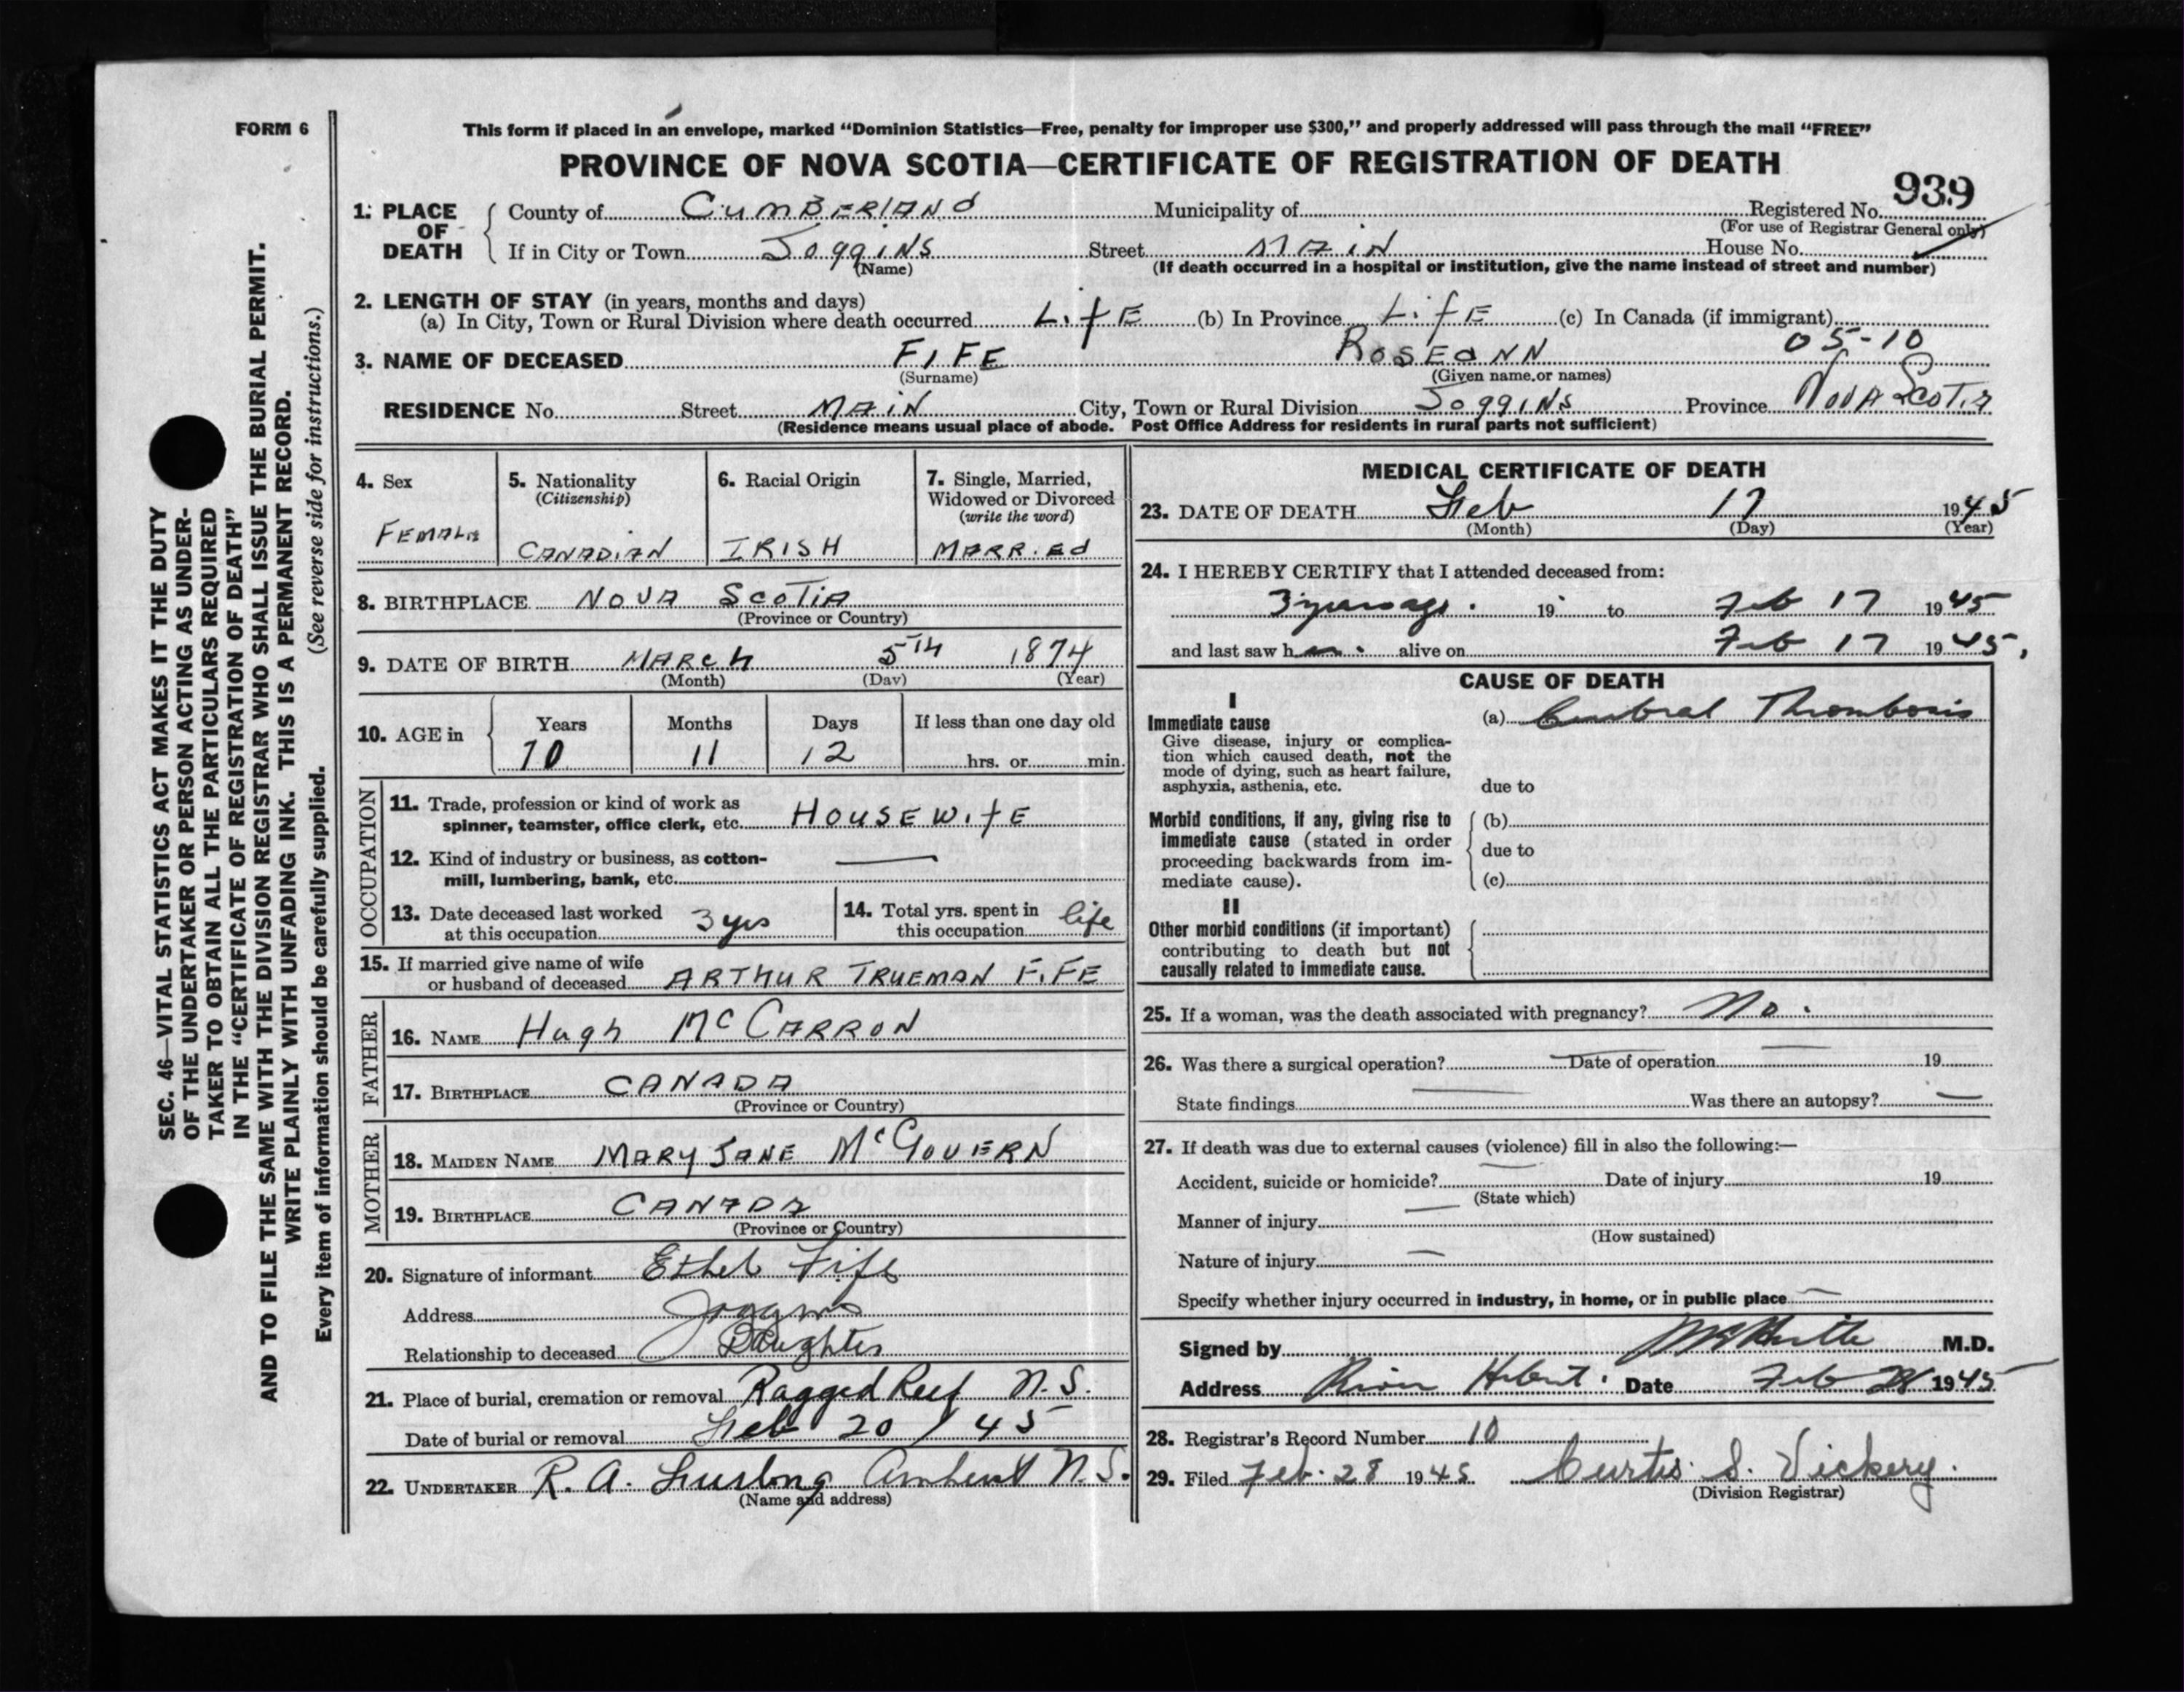 FORM 6
This form if placed in an envelope, marked "Dominion Statistics—Free, penalty for improper use $300," and properly addressed will pass through the mail "FREE"
PROVINCE OF NOVA SCOTIA—CERTIFICATE OF REGISTRATION OF DEATH
939
1. PLACE OF DEATH
County of CUMBERLANd Municipality of Registered No.
(For use of Registrar General only)
If in City or Town JoggINS Street MAIN House No.
(Name) (If death occurred in a hospital or institution, give the name instead of street and number)
2. LENGTH OF STAY (in years, months and days)
(a) In City, Town or Rural Division where death occurred LifE (b) In Province LifE (c) In Canada (if immigrant)
05-10
3. NAME OF DECEASED FIFE ROSEaNN
(Surname) (Given name or names)
RESIDENCE No. Street MAiN City, Town or Rural Division JoggINS Province NOVA SCOTIA
(Residence means usual place of abode. Post Office Address for residents in rural parts not sufficient)
SEC. 46—VITAL STATISTICS ACT MAKES IT THE DUTY
OF THE UNDERTAKER OR PERSON ACTING AS UNDER-
TAKER TO OBTAIN ALL THE PARTICULARS REQUIRED
IN THE "CERTIFICATE OF REGISTRATION OF DEATH"
AND TO FILE THE SAME WITH THE DIVISION REGISTRAR WHO SHALL ISSUE THE BURIAL PERMIT.
WRITE PLAINLY WITH UNFADING INK. THIS IS A PERMANENT RECORD.
Every item of information should be carefully supplied. (See reverse side for instructions.)
4. Sex
FEMALE
5. Nationality
(Citizenship)
CANADIAN
6. Racial Origin
IRISH
7. Single, Married,
Widowed or Divorced
(write the word)
MARRiEd
8. BIRTHPLACE NOVA SCOTIA
(Province or Country)
9. DATE OF BIRTH MARCH 5TH 1874
(Month) (Day) (Year)
10. AGE in Years Months Days If less than one day old
70 11 12 hrs. or min.
OCCUPATION
11. Trade, profession or kind of work as
spinner, teamster, office clerk, etc. HOUSEWifE
12. Kind of industry or business, as cotton-
mill, lumbering, bank, etc. —
13. Date deceased last worked
at this occupation 3 yrs
14. Total yrs. spent in
this occupation life
15. If married give name of wife
or husband of deceased ARTHUR TRUEMAN FiFE
FATHER
16. NAME Hugh McCARRON
17. BIRTHPLACE CANADA
(Province or Country)
MOTHER
18. MAIDEN NAME MARY JANE McGOVERN
19. BIRTHPLACE CANADA
(Province or Country)
20. Signature of informant Ethel Fife
Address Joggins
Relationship to deceased Daughter
21. Place of burial, cremation or removal Ragged Reef N.S.
Date of burial or removal Feb 20 / 45
22. UNDERTAKER R. A. Amherst N.S.
(Name and address)
MEDICAL CERTIFICATE OF DEATH
23. DATE OF DEATH Feb 17 1945
(Month) (Day) (Year)
24. I HEREBY CERTIFY that I attended deceased from:
3 years ago. 19 to Feb 17 1945
and last saw h alive on Feb 17 1945.
CAUSE OF DEATH
I
Immediate cause
Give disease, injury or complica-
tion which caused death, not the
mode of dying, such as heart failure,
asphyxia, asthenia, etc.
(a) Cerebral Thrombosis
due to
Morbid conditions, if any, giving rise to
immediate cause (stated in order
proceeding backwards from im-
mediate cause).
(b)
due to
(c)
II
Other morbid conditions (if important)
contributing to death but not
causally related to immediate cause.
25. If a woman, was the death associated with pregnancy? No.
26. Was there a surgical operation? — Date of operation — 19
State findings — Was there an autopsy? —
27. If death was due to external causes (violence) fill in also the following:—
Accident, suicide or homicide? — Date of injury 19
(State which)
Manner of injury —
(How sustained)
Nature of injury —
Specify whether injury occurred in industry, in home, or in public place —
Signed by M.D.
Address River Hebert. Date Feb 1945
28. Registrar's Record Number 10
29. Filed Feb. 28 1945 Curtis S. Vickery.
(Division Registrar)